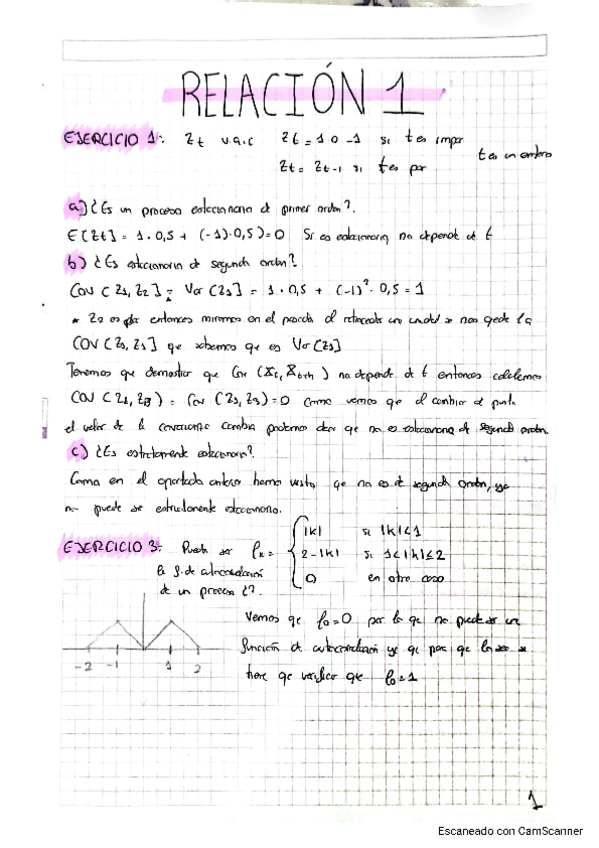 RELACIÓN 1
EJERCICIO 1: Zt v.a.c Zt = 1 o -1 si t es impar
t es un entero
Zt = Zt-1 si t es par
a) ¿Es un proceso estacionario de primer orden?.
E[Zt] = 1·0,5 + (-1)·0,5 = 0 Si es estacionario no depende de t
b) ¿Es estacionario de segundo orden?
Cov [Z1, Z2] = Var [Z1] = 1·0,5 + (-1)²·0,5 = 1
* Z2 es par entonces miramos en el pasado al retroceder una unidad se nos queda la
COV [Z1, Z1] que sabemos que es Var [Z1]
Tenemos que demostrar que Cov (Xt, Xt+h) no depende de t entonces calculemos
COV (Z2, Z3) = Cov (Z1, Z3) = 0 Como vemos que al cambiar de punto
el valor de la covarianza cambia podemos decir que no es estacionario de segundo orden.
c) ¿Es estrictamente estacionario?.
Como en el apartado anterior hemos visto, que no es de segundo orden, ya
no puede ser estrictamente estacionario.
EJERCICIO 3: Puede ser ρk = { |k| si |k|<1
2-|k| si 1≤|k|≤2
0 en otro caso
la f. de autocorrelación
de un proceso E?.
Vemos que ρ0=0 por lo que no puede ser una
función de autocorrelación ya que para que lo sea se
tiene que verificar que ρ0=1
-2 -1 1 2
1
Escaneado con CamScanner